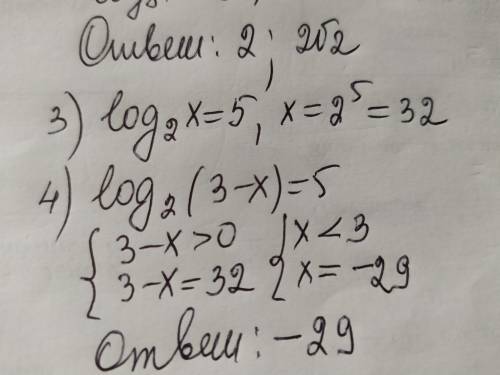 Ответ: 2; 2√2
3) log₂x=5, x=2⁵=32
4) log₂(3-x)=5
{3-x>0 {x<3
{3-x=32 {x=-29
Ответ: -29